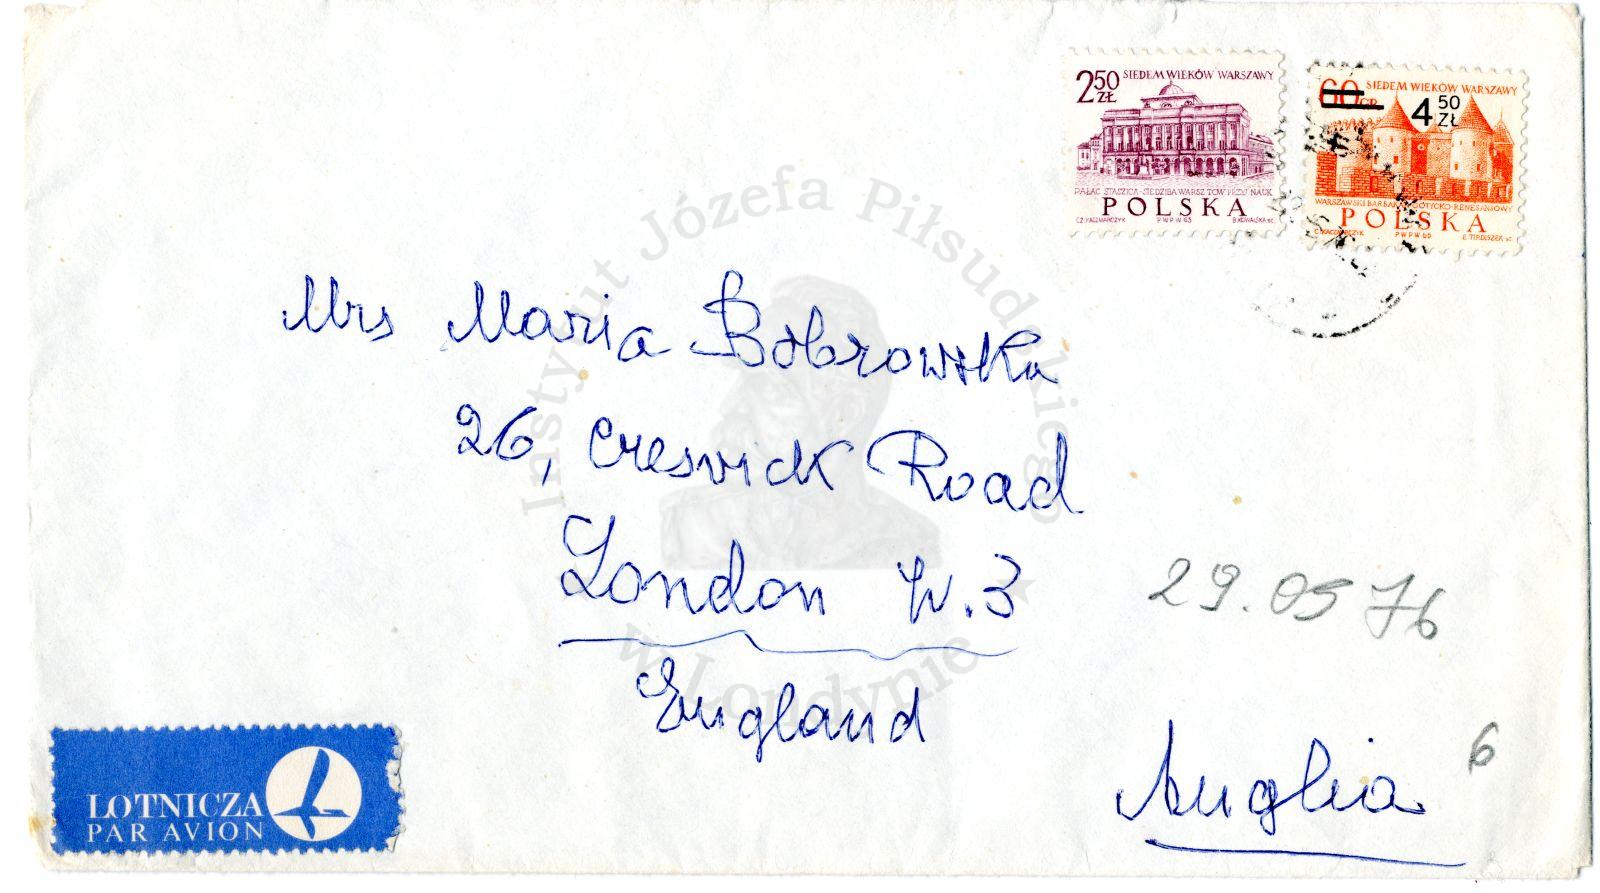 2 50 ZŁ SIEDEM WIEKÓW WARSZAWY
PAŁAC STASZICA-SIEDZIBA WARSZ TOW PRZYJ NAUK
POLSKA
CZ. KACZMARCZYK PWPW 65 B. KOWALSKA sc.
60 GR SIEDEM WIEKÓW WARSZAWY
4 50 ZŁ
WARSZAWSKI BARBAKAN GOTYCKO-RENESANSOWY
POLSKA
CZ. KACZMARCZYK PWPW 65 E. TIRDISZEK sc.
Instytut Józefa Piłsudskiego
w Londynie
Mrs Maria Bobrowska
26, Creswick Road
London W.3
England
29.05 76
Anglia
6
LOTNICZA
PAR AVION